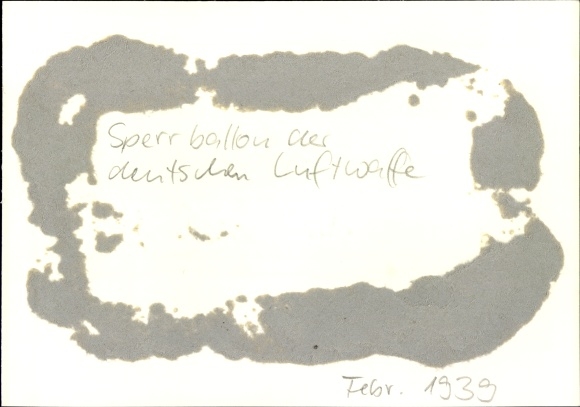 Sperrballon der
deutschen Luftwaffe
Febr. 1939